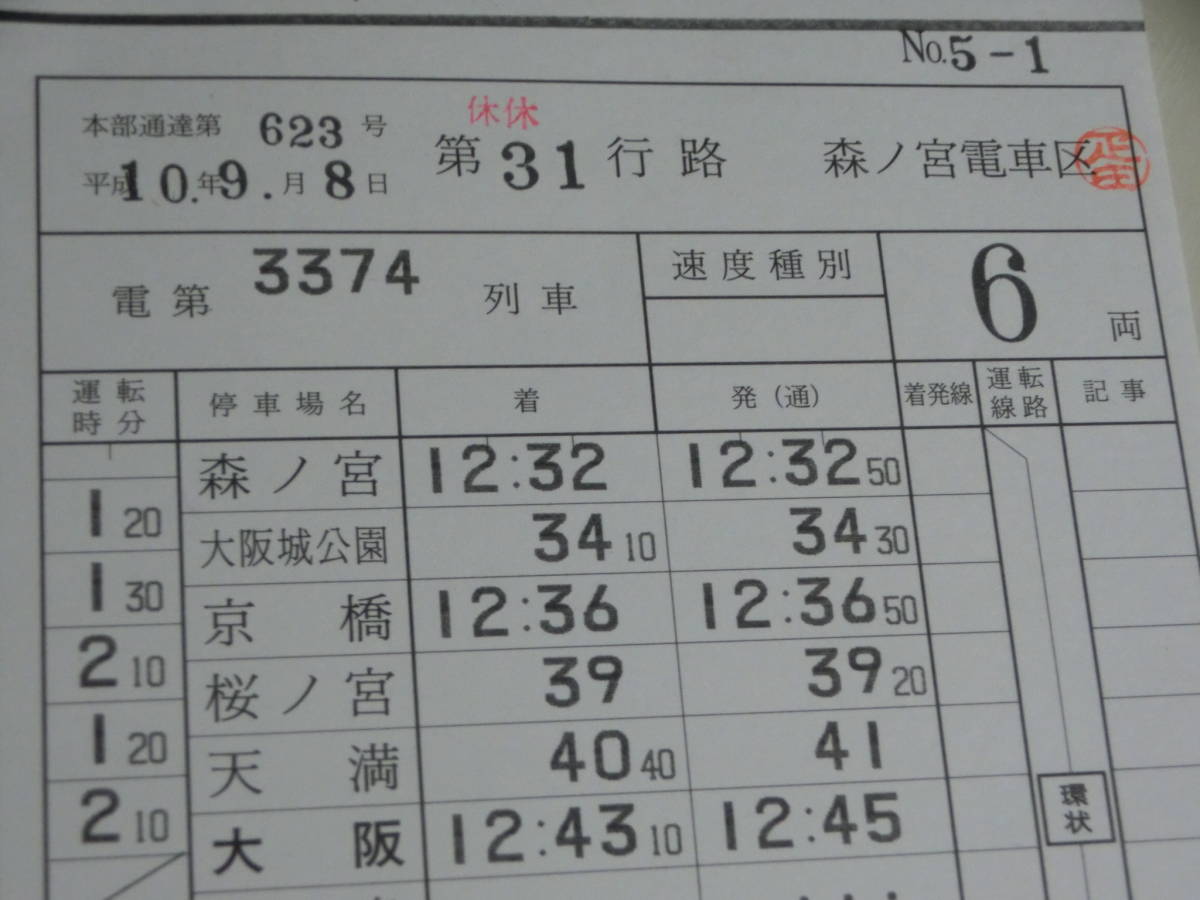 No.5-1
本部通達第 623 号
平成10.年9.月8日
休休
第31行路 森ノ宮電車区
電第 3374 列車 速度種別 6両
運転時分 停車場名 着 発(通) 着発線 運転線路 記事
森ノ宮 12:32 12:32 50
1 20
大阪城公園 34 10 34 30
1 30
京橋 12:36 12:36 50
2 10
桜ノ宮 39 39 20
1 20
天満 40 40 41
2 10
大阪 12:43 10 12:45
環状